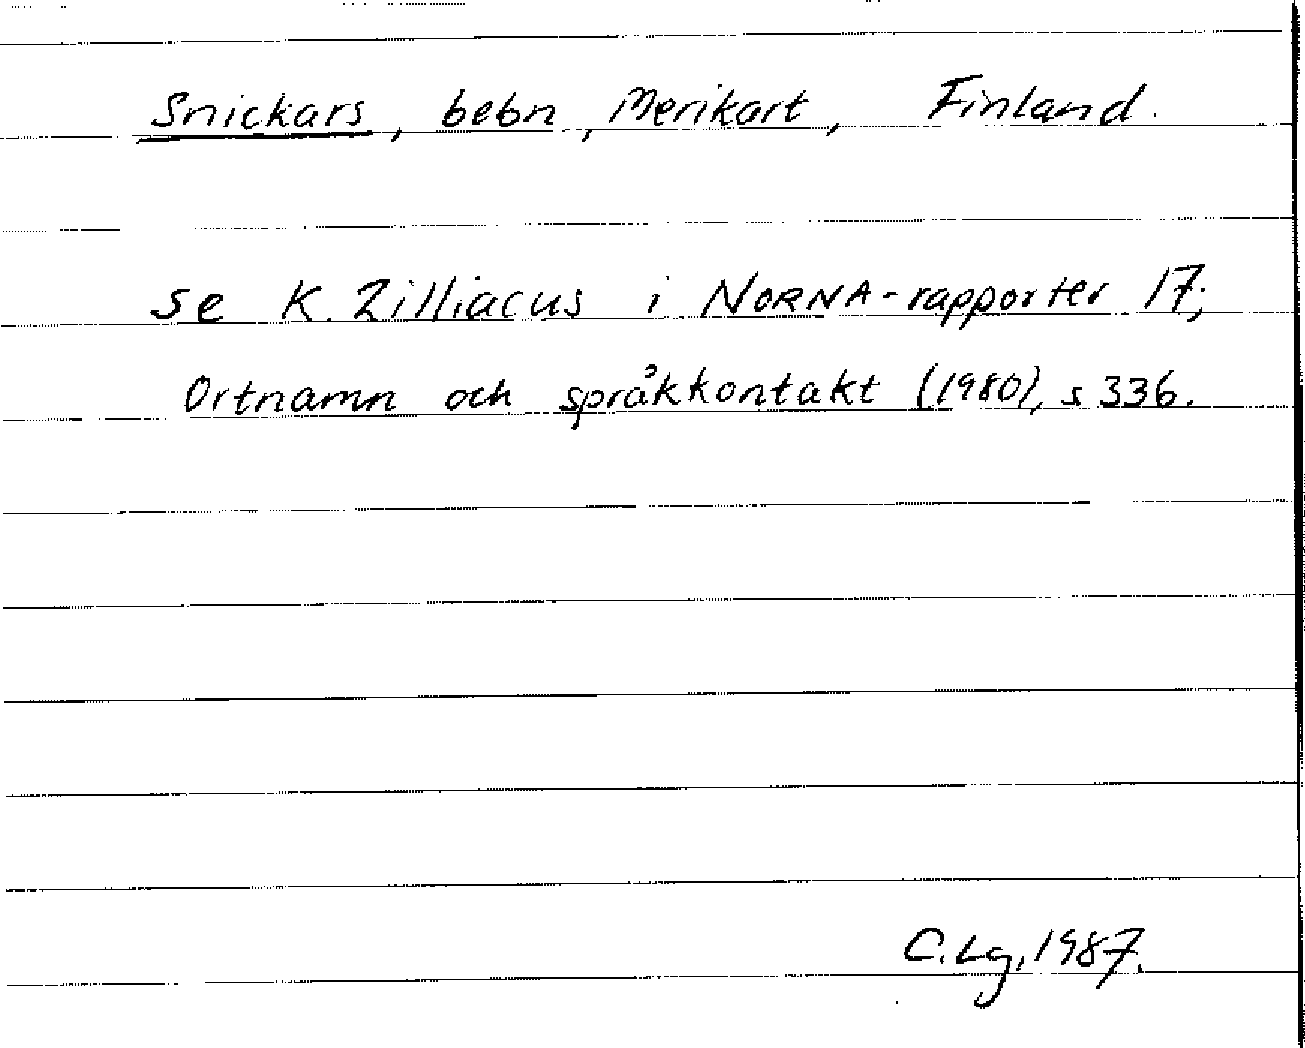 Snickars, bebn, Merikart, Finland.
se K. Zilliacus i NORNA-rapporter 17;
Ortnamn och språkkontakt (1980), s 336.
C. Lg, 1987.